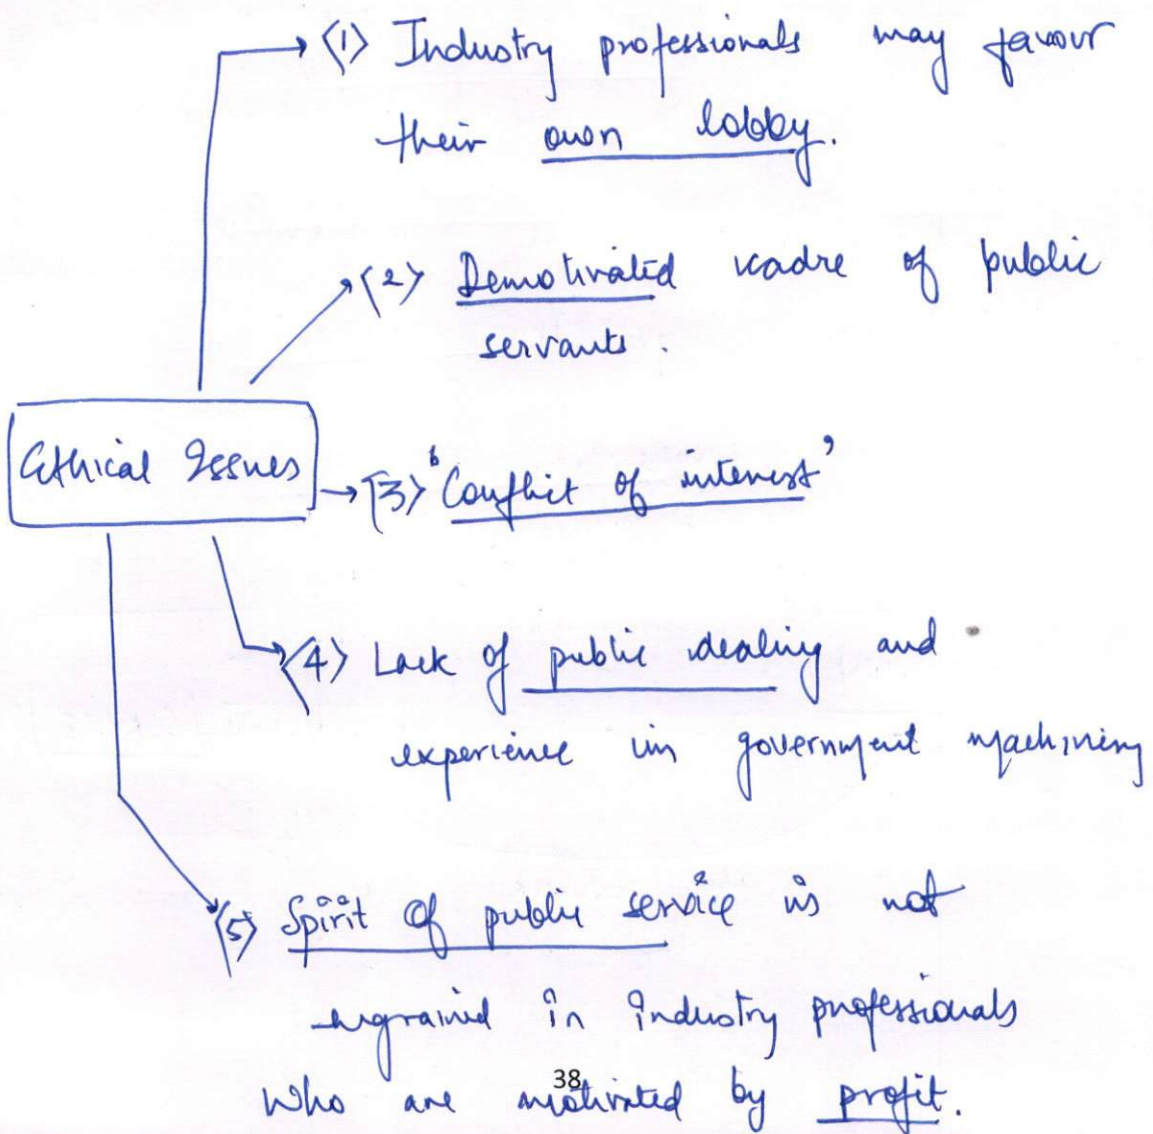 <1> Industry professionals may favour
their own lobby.
<2> Demotivated cadre of public
servants.
Ethical Issues
<3> 'Conflict of interest'
<4> Lack of public dealing and
experience in government machinery
<5> Spirit of public service is not
engrained in industry professionals
38
who are motivated by profit.